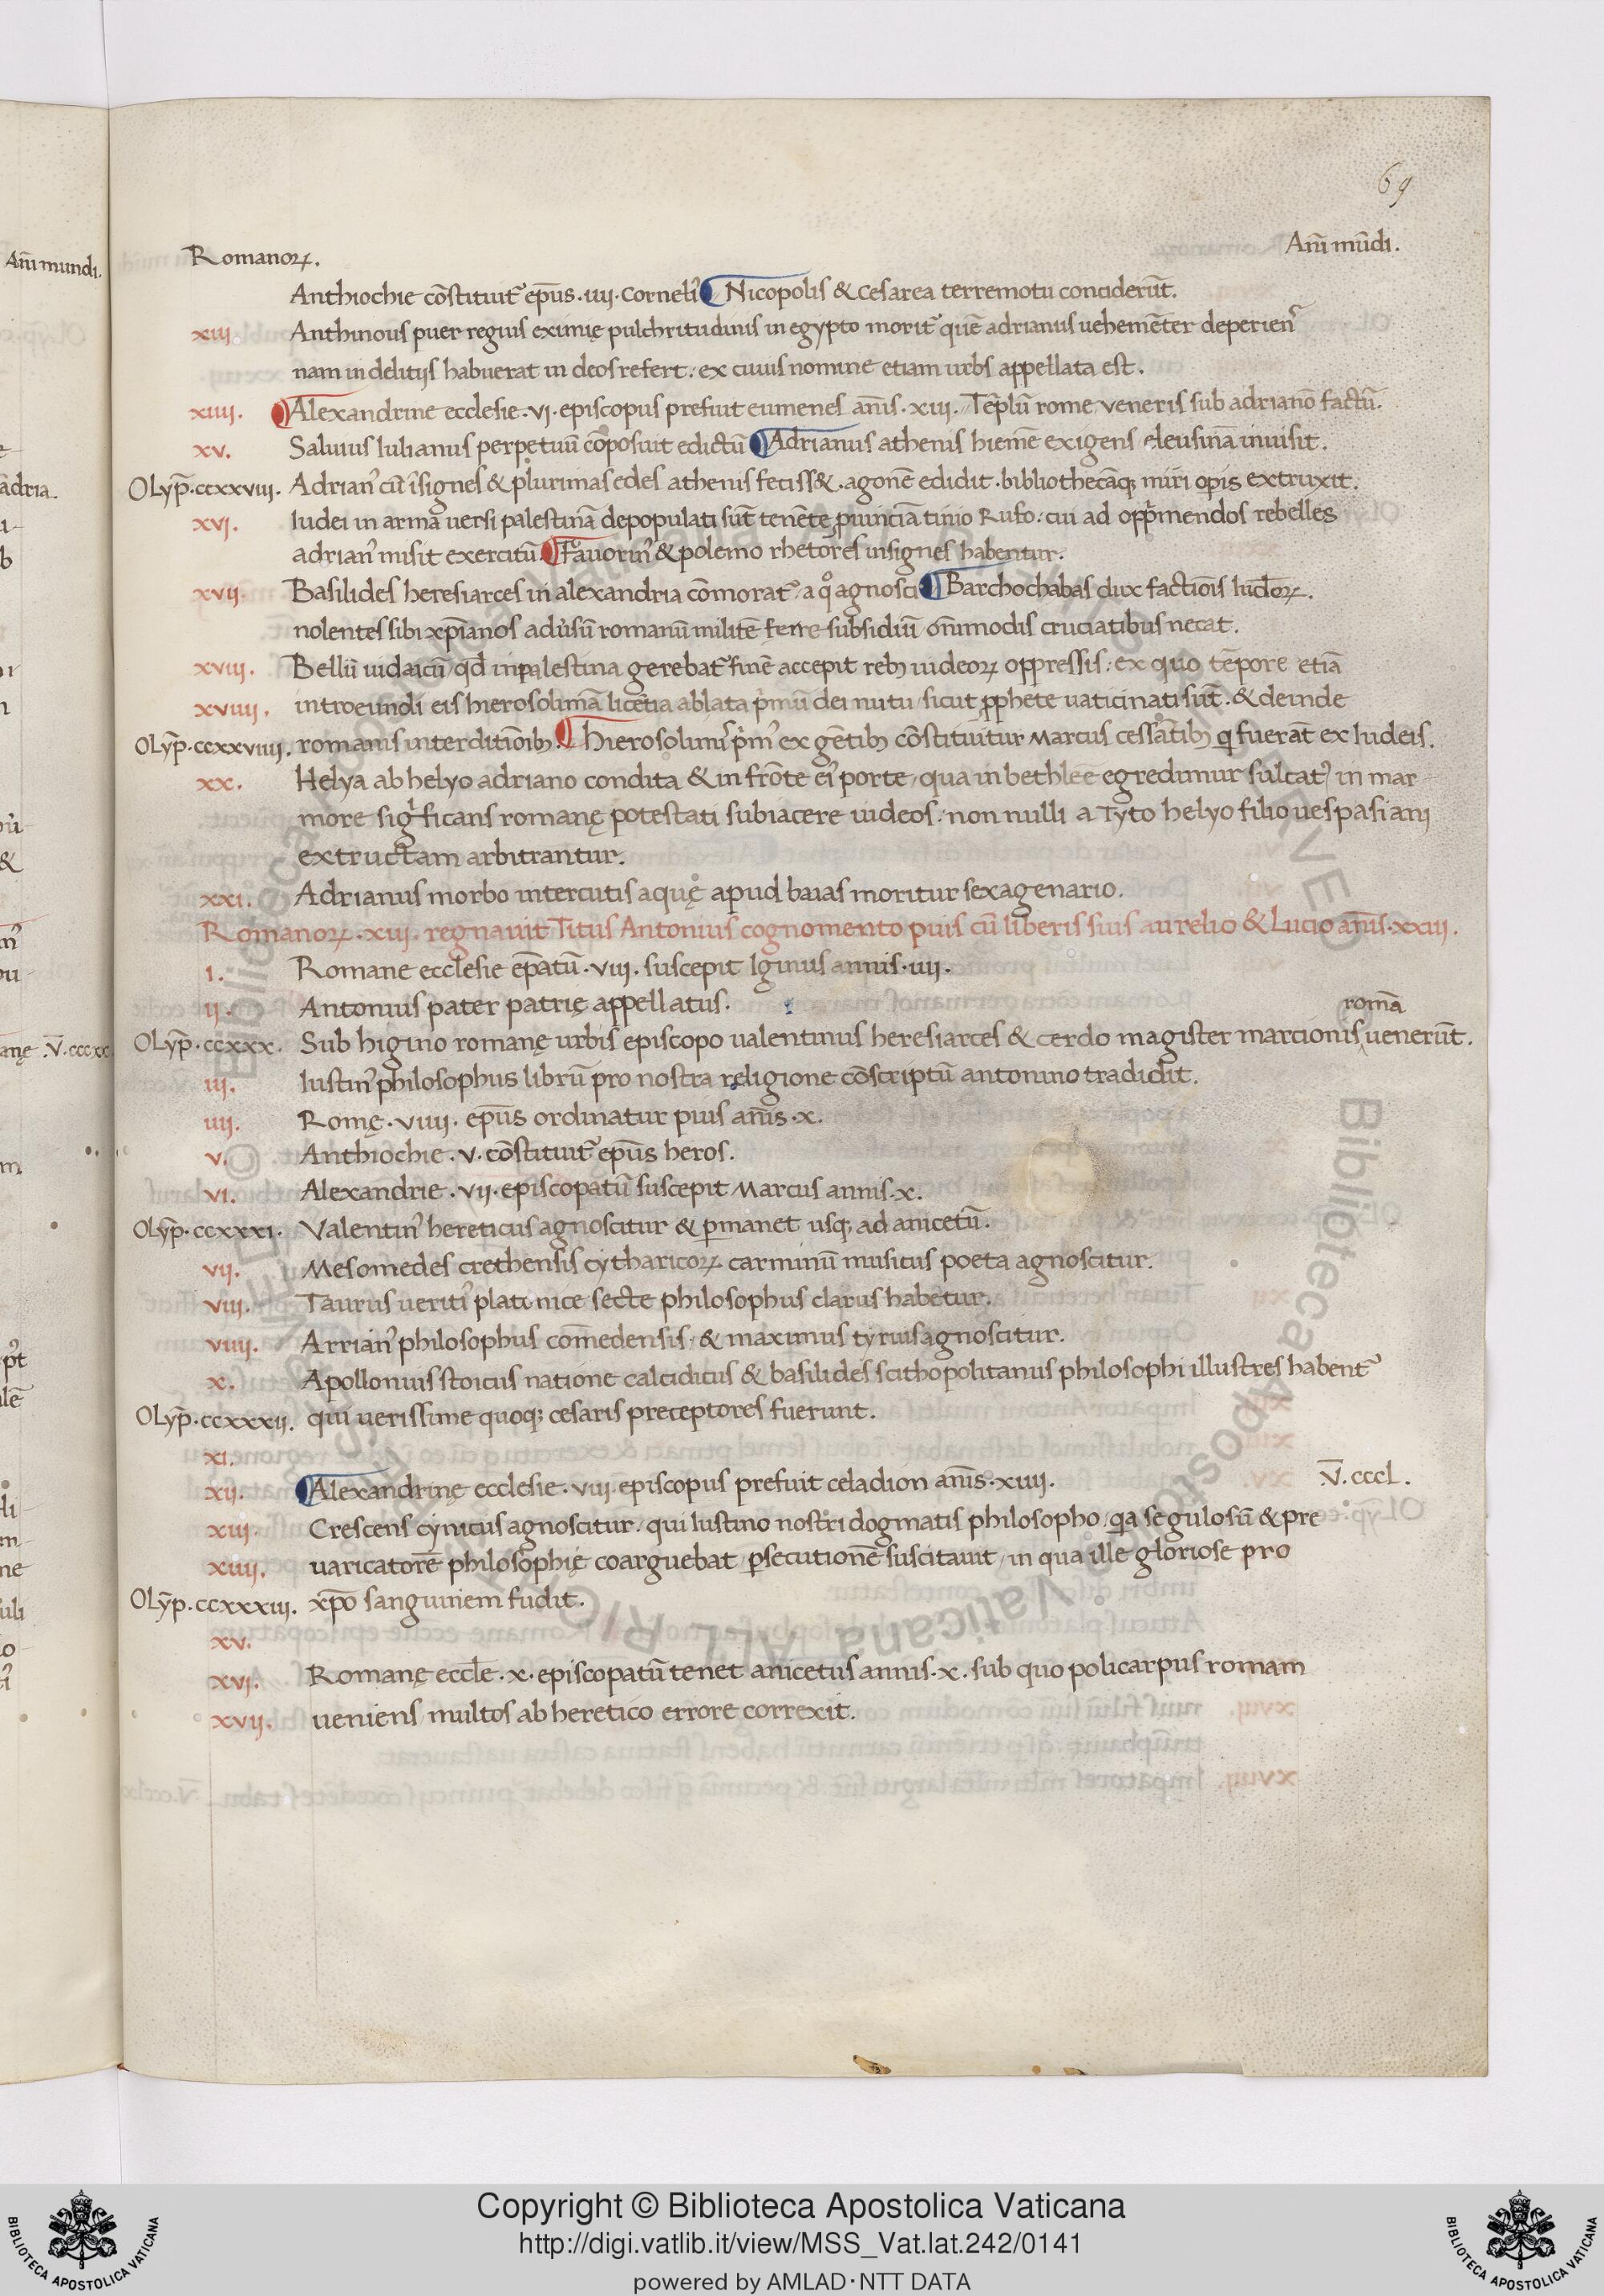 69
Romanoꝝ. Añi mũdi.
Anthiochie cõstituit᷑ ep̃us. iiij. Corneli᷒ Nicopolis & Cesarea terremotu conciderũt.
xiii Anthinous puer regius eximię pulchritudinis in egypto morit᷑ quẽ adrianus uehemẽter deperien᷒
nam in delitijs habuerat in deos refert: ex cuius nomine etiam urbs appellata est.
xiiii. Alexandrine ecclesie. vi. episcopus prefuit eumenes añis. xiii. Tẽplũ rome veneris sub adriano factũ.
xv. Saluius Iulianus perpetuũ cõposuit edictũ Adrianus athenis hiemẽ exigens eleusinã inuisit.
OLyp̃. ccxxviii. Adrian᷒ cũ ĩsignes & plurimas edes athenis feciss&. agonẽ edidit. bibliothecãq; miri opis extruxit.
xvi. Iudei in arma uersi palestinã depopulati sũt tenẽte ꝓuinciã tinio Rufo: cui ad opp̃mendos rebelles
adrian᷒ misit exercitũ. Fauorin᷒ & polemo rhetores insignes habentur.
xvii. Basilides heresiarces in alexandria cõmorat᷑ a qͦ agnosci Barchochabas dux factiõis Iud̃eoꝝ.
nolentes sibi xp̃ianos adu᷒sũ romanũ militẽ ferre subsidiũ om̃imodis cruciatibus necat.
xviii. Bellũ iudaicũ qd̃ in palestina gerebat᷑ finẽ accepit reb; iudeoꝝ oppressis: ex quo tẽpore etiã
xviiii. introeundi eis hierosolimã licẽtia ablata p̃mũ dei nutu sicut ꝓphete uaticinati sũt. & deinde
OLyp̃. ccxxviiii. romanis interditiõib; hierosolimi᷒ p̃m᷒ ex gẽtib; cõstituitur Marcus cessãtib; q̃ fuerãt ex Iudeis.
xx. Helya ab helyo adriano condita & in frõte ei᷒ porte qua in bethlẽe egredimur sulcat᷒ in mar
more sig̃ificans romanę potestati subiacere iudeos: non nulli a Tyto helyo filio uespasiani
extructam arbitrantur.
xxi. Adrianus morbo intercutis aquę apud baias moritur sexagenario.
Romanoꝝ. xii. regnauit Titus Antonius cognomento puis cũ liberis suis aurelio & Lucio añis. xxiii.
i. Romane ecclesie ep̃atũ. viii. suscepit Iginus annis. iiii.
ii. Antonius pater patrię appellatus.
romã
OLyp̃. ccxxx. Sub higino romanę urbis episcopo ualentinus heresiarces & cerdo magister marcionis uenerũt.
iii. Iustin᷒ philosophus librũ pro nostra religione cõscriptũ antonino tradidit.
iiii. Romę. viiii. ep̃us ordinatur puis añis. x.
v. Anthiochie. v. cõstituit᷑ ep̃us heros.
vi. Alexandrie. vii. episcopatũ suscepit Marcus annis. x.
OLyp̃. ccxxxi. Valentin᷒ hereticus agnoscitur & ꝑmanet usq; ad anicetũ.
vii. Mesomedes crethensis cytharicoꝝ carminũ musicus poeta agnoscitur.
viii. Taurus ueriti᷒ platonice secte philosophus clarus habetur.
viiii. Arrian᷒ philosophus com̃edensis & maximus tyrius agnoscitur.
x. Apollonius stoicus natione calcidicus & basilides scithopolitanus philosophi illustres habent᷑
OLyp̃. ccxxxii. qui uerissime quoq; cesaris preceptores fuerunt.
xi.
xii. Alexandrinę ecclesie. viii. episcopus prefuit celadion añis. xiiii. V̄. cccl.
xiii. Crescens cynicus agnoscitur qui Iustino nostri dogmatis philosopho q̃a se gulosũ & pre
xiiii. uaricatorẽ philosophię coarguebat ꝑsecutionẽ suscitauit in qua ille gloriose pro
OLyp̃. ccxxxiii. xp̃o sanguinem fudit.
xv.
xvi. Romanę eccl̃e. x. episcopatũ tenet anicetus annis. x. sub quo policarpus romam
xvii. ueniens multos ab heretico errore correxit.
Copyright © Biblioteca Apostolica Vaticana
http://digi.vatlib.it/view/MSS_Vat.lat.242/0141
powered by AMLAD·NTT DATA
BIBLIOTECA APOSTOLICA VATICANA
BIBLIOTECA APOSTOLICA VATICANA